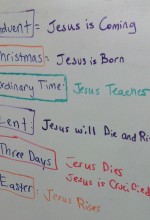 Advent = Jesus is Coming
Christmas = Jesus is Born
Ordinary Time: Jesus Teaches
Lent: Jesus will Die and Ri
Three Days Jesus Dies
Jesus is Crucified
Easter: Jesus Rises